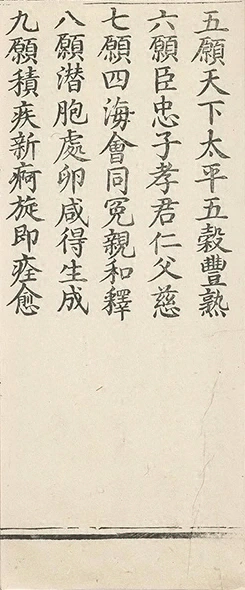 五願天下太平五穀豐熟
六願臣忠子孝君仁父慈
七願四海會同冤親和釋
八願潜胞處卵咸得生成
九願積疾新痾旋即痊愈